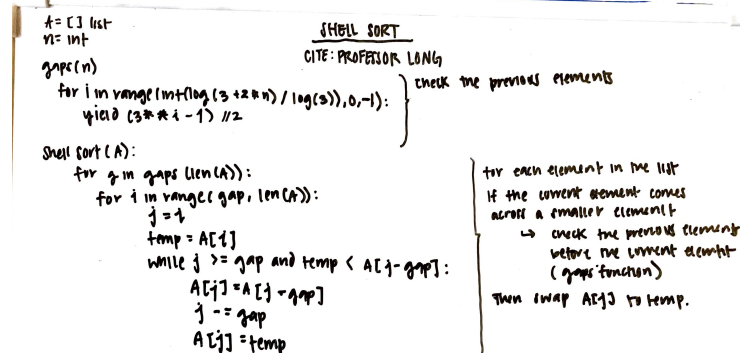 A = [] list
n = int
SHELL SORT
CITE: PROFESSOR LONG
gaps(n)
for i in range(int(log(3+2*n)/log(3)),0,-1):
yield (3**i-1)//2
check the previous elements
Shell sort(A):
for g in gaps(len(A)):
for i in range(gap, len(A)):
j = i
temp = A[i]
while j >= gap and temp < A[j-gap]:
A[j] = A[j-gap]
j -= gap
A[j] = temp
for each element in the list
If the current element comes
across a smaller element
↳ check the previous element
before the current element
(gaps function)
Then swap A[j] to temp.